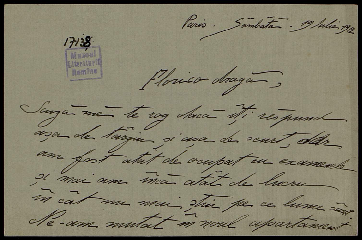 Paris. Sâmbătă. 19 Iulie 1912
17138
Muzeul
Literaturii
Române
Florico dragă,
Scuză-mă te rog dacă îți răspund
așa de târziu, și așa de scurt, dar
am fost atât de ocupat cu examenele
și mai am încă atât de lucru
încât nu mai știu pe ce lume sânt.
Ne-am mutat în noul apartament